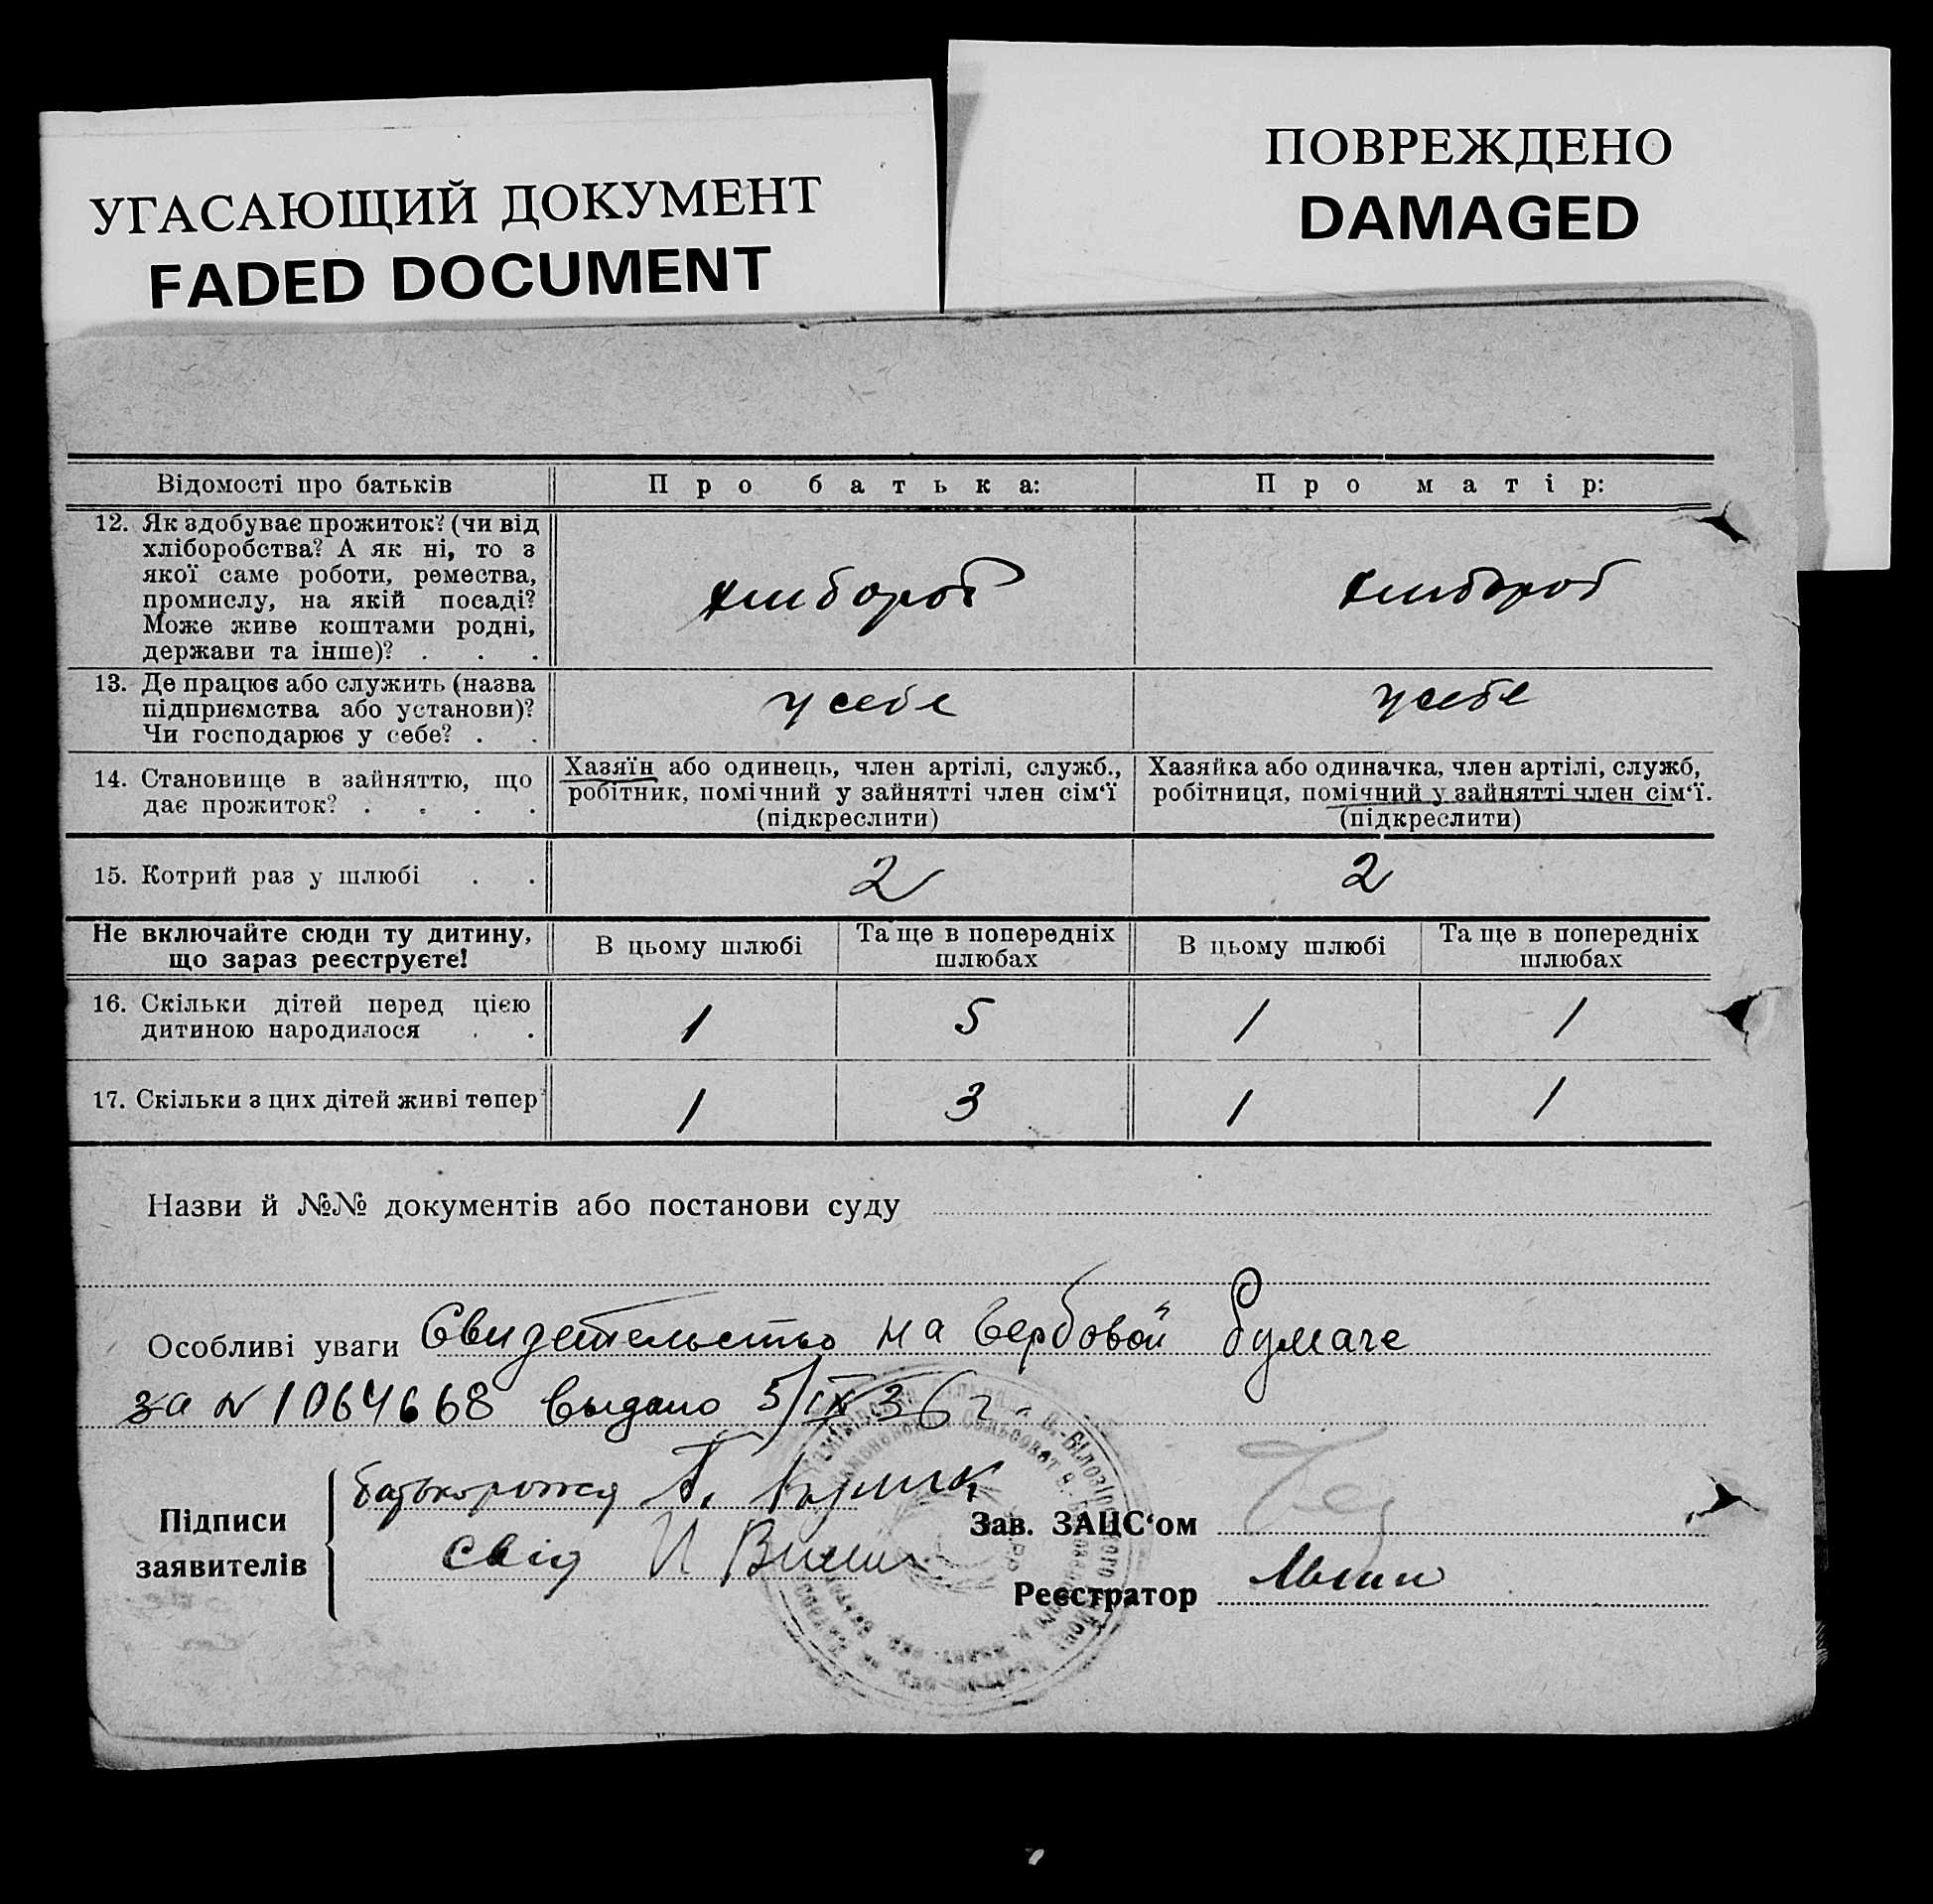 УГАСАЮЩИЙ ДОКУМЕНТ
FADED DOCUMENT
ПОВРЕЖДЕНО
DAMAGED
Відомості про батьків
Про батька:
Про матір:
12. Як здобуває прожиток? (чи від
хліборобства? А як ні, то з
якої саме роботи, ремества,
промислу, на якій посаді?
Може живе коштами родні,
держави та інше)? . . .
хлибороб
хлибороб
13. Де працює або служить (назва
підприємства або установи)?
Чи господарює у себе? . .
у себе
у себе
14. Становище в зайняттю, що
дає прожиток? . . . .
Хазяїн або одинець, член артілі, служб.,
робітник, помічний у зайнятті член сім‘ї
(підкреслити)
Хазяйка або одиначка, член артілі, служб,
робітниця, помічний у зайнятті член сім‘ї.
(підкреслити)
15. Котрий раз у шлюбі . .
2
2
Не включайте сюди ту дитину,
що зараз реєструєте!
В цьому шлюбі
Та ще в попередніх
шлюбах
В цьому шлюбі
Та ще в попередніх
шлюбах
16. Скільки дітей перед цією
дитиною народилося . .
1
5
1
1
17. Скільки з цих дітей живі тепер
1
3
1
1
Назви й №№ документів або постанови суду
Особливі уваги Свидетельство на гербовой бумаге
за № 1064668 выдано 5/IX 36 г.
Підписи
заявителів
свід И
Зав. ЗАЦС‘ом
Реєстратор